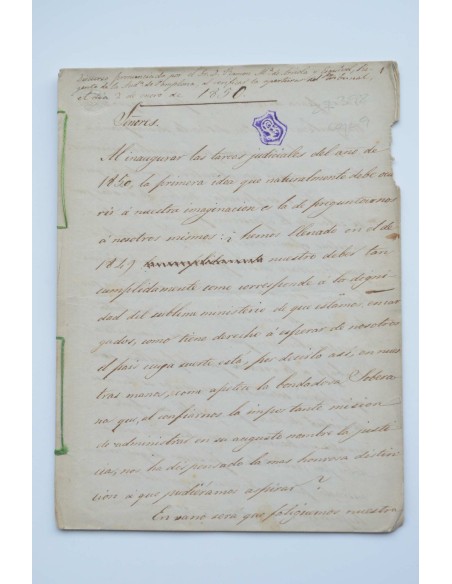 Discurso pronunciado por el
de la Aud.ª de Pamplona al
el dia 2 de enero de 1850
Señores.
Al inaugurar las tareas judiciales del año de
1850, la primera idea que naturalmente debe ocur
rir á nuestra imaginacion es la de preguntarnos
á nosotros mismos: ¿hemos llenado en el de
1849 nuestro deber tan
cumplidamente como corresponde á la digni
dad del sublime ministerio de que estamos encar
gados, como tiene derecho á esperar de nosotros
el pais cuya suerte está, por decirlo asi, en nues
tras manos, como la bondadosa Sobera
na que, al confiarnos la importante mision
de administrar en su augusto nombre la justi
cia, nos ha dispensado la mas honrosa distin
cion á que pudieramos aspirar?
En vano será que nuestra